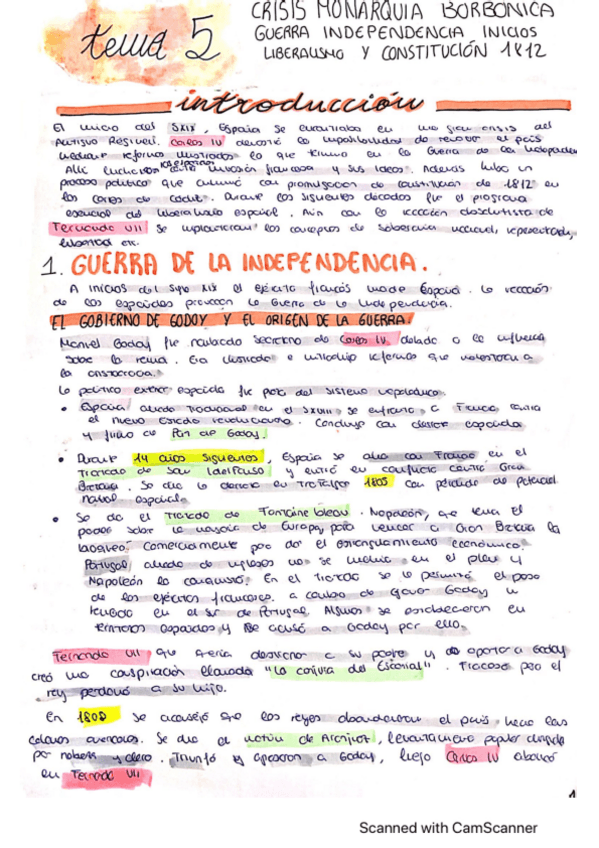 tema 5
CRISIS MONARQUIA BORBONICA
GUERRA INDEPENDENCIA INICIOS
LIBERALISMO Y CONSTITUCIÓN 1812
introducción
El inicio del SXIX, España se encontraba en una gran crisis del
Antiguo Régimen. Carlos IV la imposibilidad de el país
mediante reformas ilustradas lo que en la Guerra de la
Allí españoles invasión francesa y sus ideas. Además hubo un
proceso político que culminó con promulgación de constitución de 1812 en
las cortes de Cádiz. Durante las siguientes décadas fue el programa
esencial del liberalismo español. Aún con la reacción absolutista de
Fernando VII se los conceptos de soberanía nacional,
libertad etc.
1. GUERRA DE LA INDEPENDENCIA.
A inicios del siglo XIX el ejército francés invade España. La reacción
de los españoles provocan la Guerra de la Independencia.
EL GOBIERNO DE GODOY Y EL ORIGEN DE LA GUERRA.
Manuel Godoy fue nombrado secretario de Carlos IV, debido a la influencia
sobre la reina. Era ilustrado e introdujo reformas que molestaron a
la aristocracia.
La política exterior española fue parte del sistema napoleónico.
• España aliada tradicional en el SXVIII se enfrentó a Francia contra
el nuevo Estado revolucionario. Concluyó con derrota española
y firma de Paz de Godoy.
• Durante 14 años siguientes, España se alió con Francia en el
Tratado de San Ildefonso y entró en conflicto contra Gran
Bretaña. Se dio la derrota en Trafalgar 1805 con pérdida de potencial
naval español.
• Se da el Tratado de Fontainebleau. Napoleón, que tenía el
poder sobre la mayoría de Europa, para vencer a Gran Bretaña la
bloqueó comercialmente para dar el estrangulamiento económico.
Portugal aliado de ingleses no se metió en el plan y
Napoleón la conquistó. En el tratado se le permitió el paso
de los ejércitos franceses a cambio de Godoy
en el sur de Portugal. Algunos se establecieron en
territorios españoles y se acusó a Godoy por ello.
Fernando VII que quería destronar a su padre y de apartar a Godoy
creó una conspiración llamada "La conjura del Escorial". Fracasó pero el
rey perdonó a su hijo.
En 1808 se aconsejó que los reyes abandonaran el país hacia las
colonias americanas. Se dio el motín de Aranjuez, levantamiento popular dirigido
por nobleza y clero. Triunfó y apresaron a Godoy, luego Carlos IV abdicó
en Fernando VII
1
Scanned with CamScanner